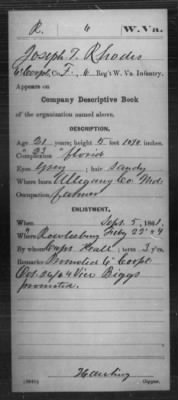 R. 6 W. Va.
Joseph T. Rhodes
Corpl, Co. F, 6 Reg't W. Va. Infantry.
Appears on
Company Descriptive Book
of the organization named above.
DESCRIPTION.
Age 21 years; height 5 feet 10¾ inches.
" 23 "
Complexion florid
Eyes grey; hair sandy
Where born Allegany Co. Md.
Occupation farmer
ENLISTMENT.
When Sept. 5, 1861.
Where Rowlesburg Feby 22" 64
By whom Capt. Heall; term 3 y'rs.
Remarks: Promoted Corpl
Oct. 26/64 Vice Biggs
promoted.
Copyist.